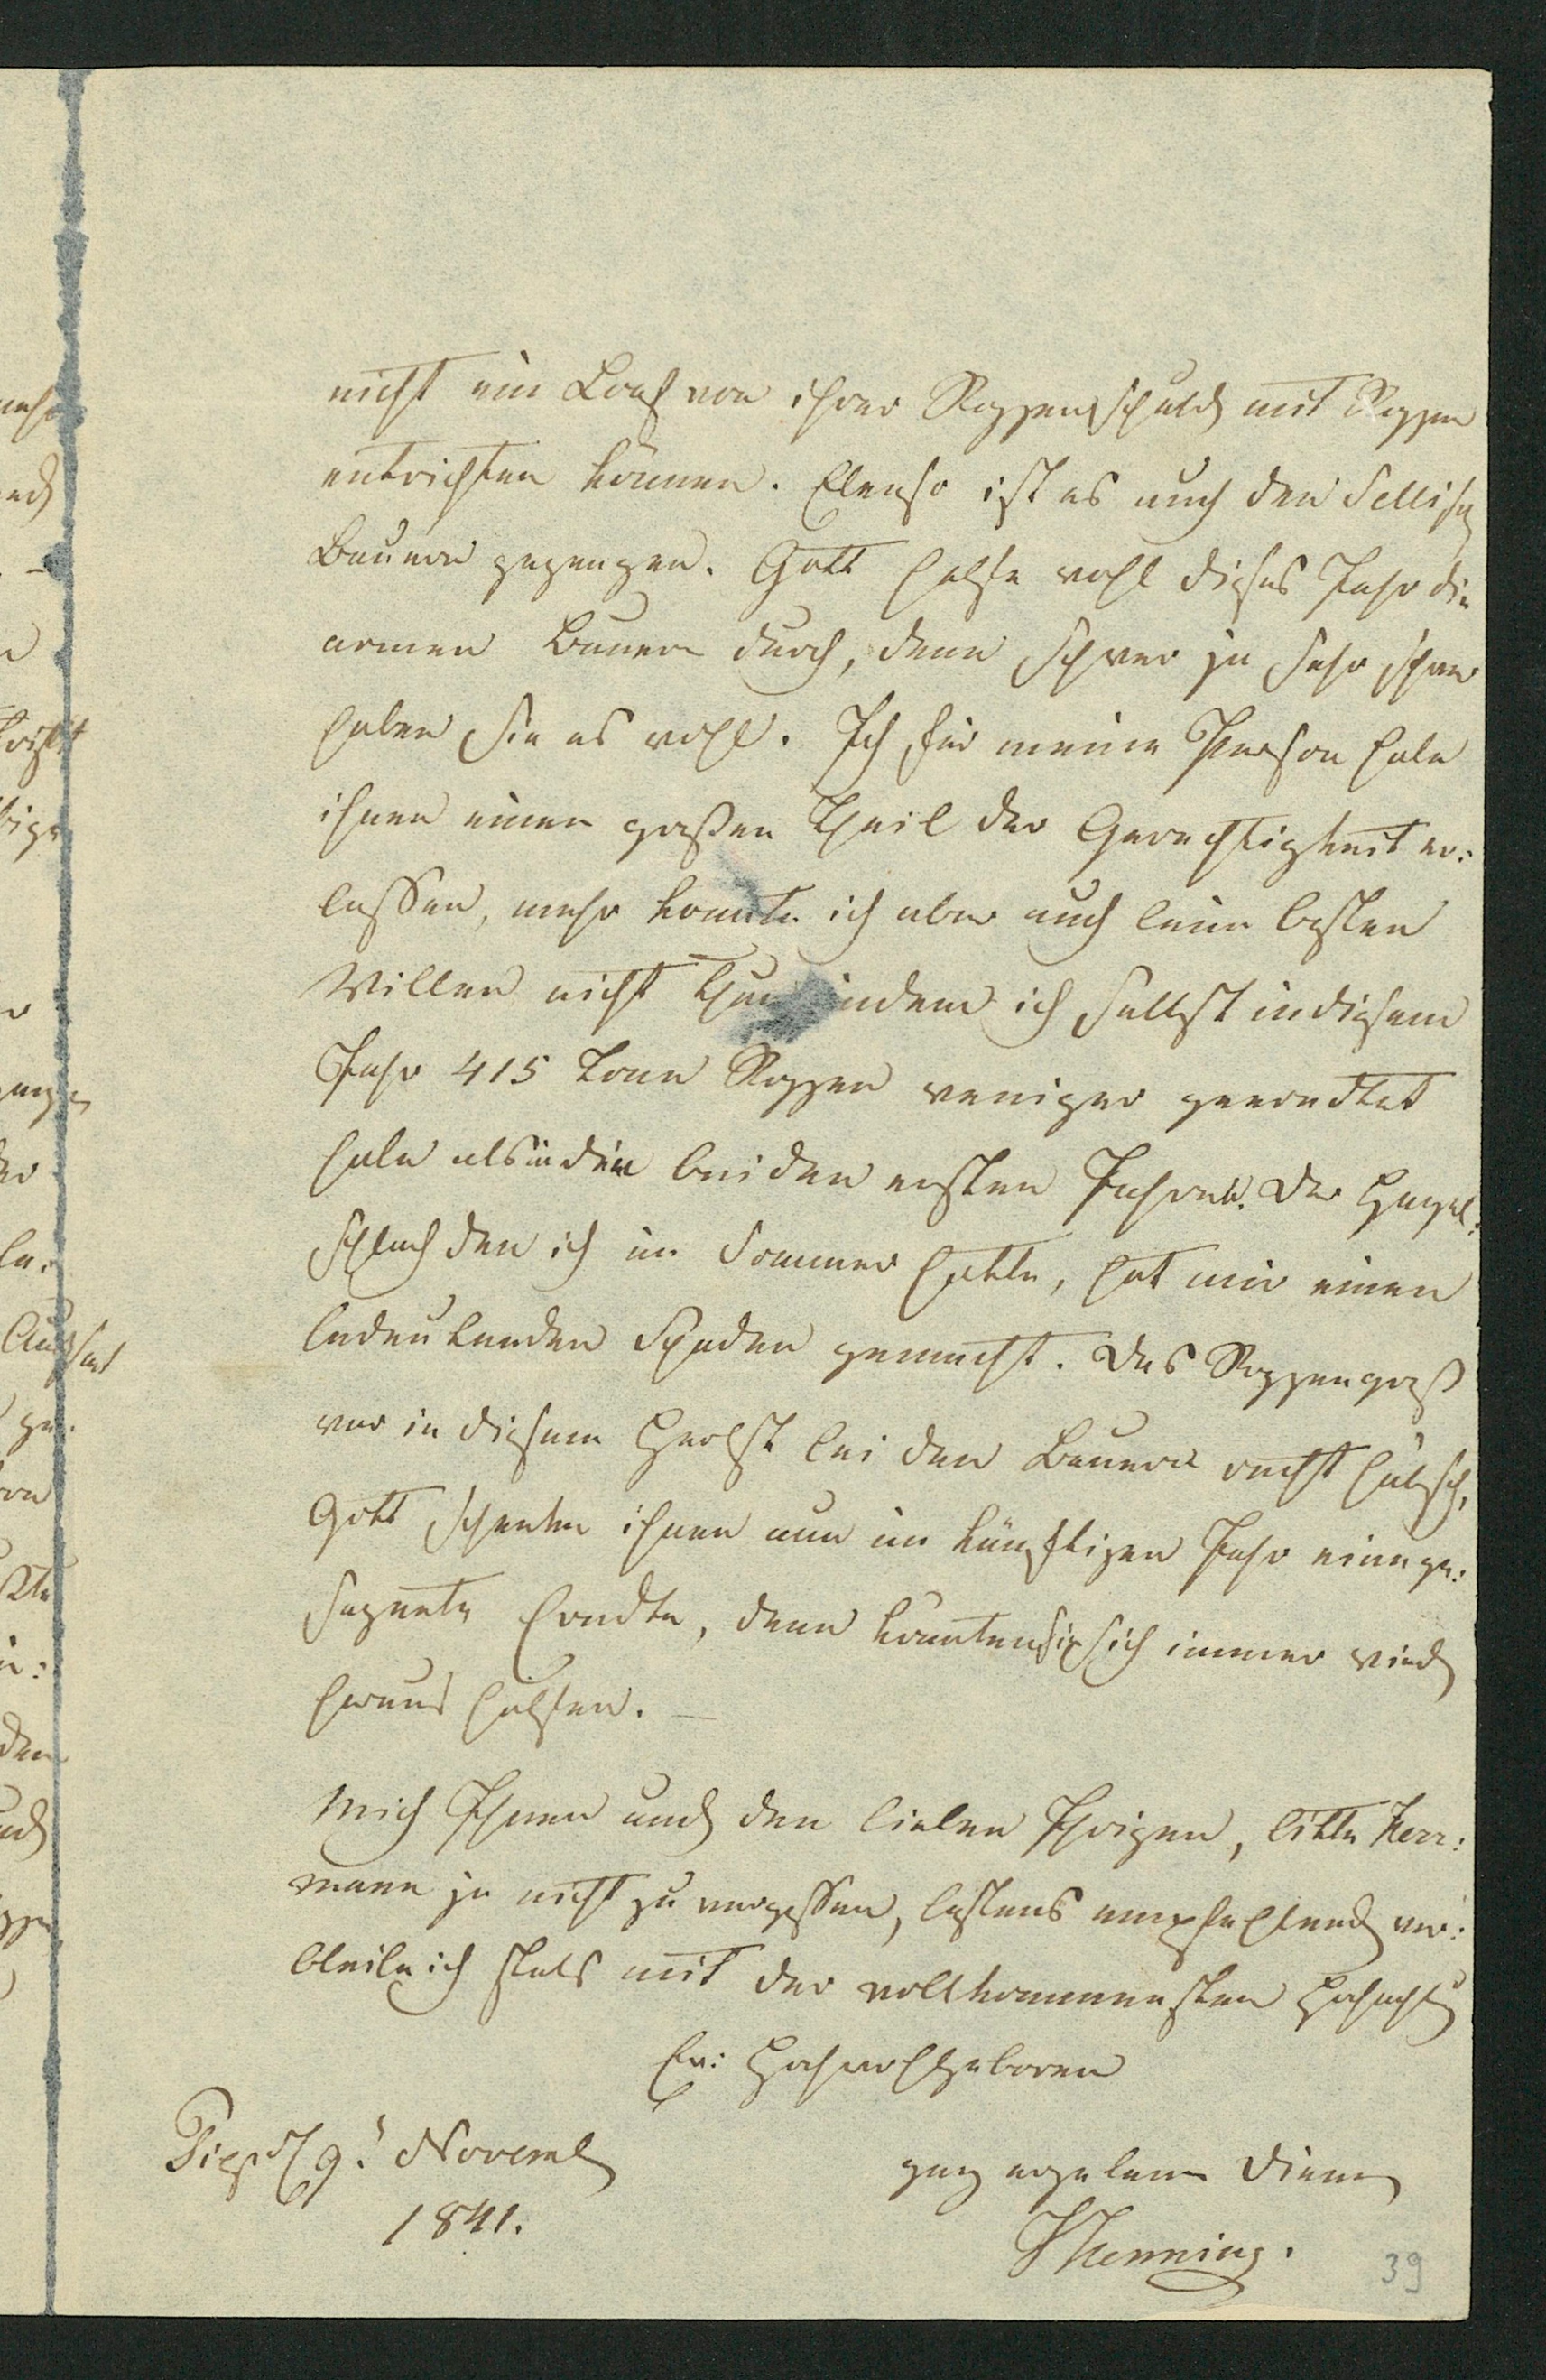 nicht ein Loof von ihrer Roggenschuld mit Roggen
entrichten können. Ebenso ist es auch den Sellisch
Bauern gegangen. Gott helfe wohl dieses Jahr die
armen Bauern durch, denn schwer ja sehr schwer
haben sie es wohl. Ich für meine Person habe
ihnen einen großen Theil der Gerechtigkeit er:
lassen, mehr konnte ich aber auch beim besten
Willen nicht thun indem ich selbst in diesem
Jahr 415 Tonn Roggen weniger geerndtet
habe als in den beiden ersten Jahren. Der Hagel:
schlach den ich im Sommer hatte, hat mir einen
bedeutenden Schaden gemacht. Das Roggengraß
war in diesem Herbst bei den Bauern recht hübsch,
Gott schenke ihnen nun im künftigen Jahr eine ge:
segnete Erndte, dann könnten sie sich immer wied
heraus helfen. —
Mich Ihnen und den lieben Ihrigen, bitte Herr:
mann ja nicht zu vergessen, bestens empfehlend ver:
bleibe ich stets mit der vollkommensten Hochacht
Ew: Hochwohlgeboren
9. Novemb
1841.
ganz ergebener Diener
Henning.
39